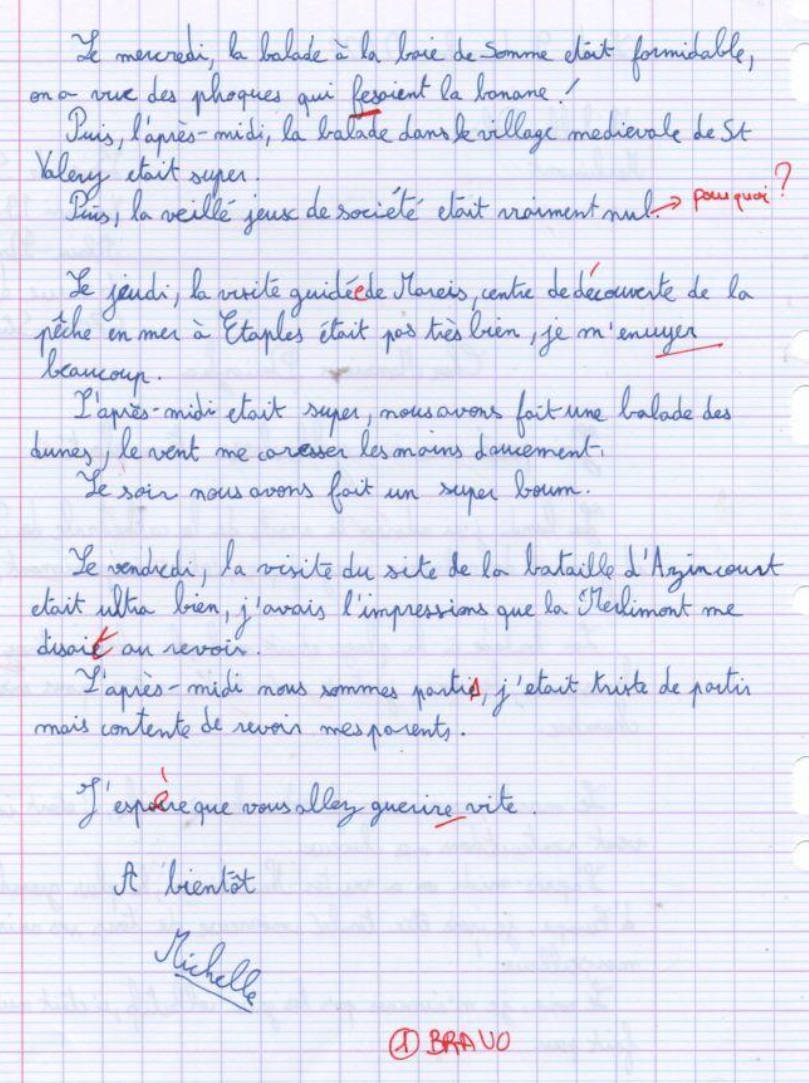 Le mercredi, la balade à la baie de Somme était formidable,
on a vue des phoques qui fesaient la banane !
Puis, l'après-midi, la balade dans le village medievale de St
Valery etait super.
Puis, la veillé jeux de société etait vraiment nul. → pourquoi ?
Le jeudi, la visite guidée de Mareis, centre de découverte de la
pêche en mer à Etaples était pas très bien, je m'enuyer
beaucoup.
L'après-midi etait super, nous avons fait une balade des
dunes, le vent me caresser les mains doucement.
Le soir nous avons fait un super boum.
Le vendredi, la visite du site de la bataille d'Azincourt
etait ultra bien, j'avais l'impressions que la Merlimont me
disait au revoir.
L'après-midi nous sommes partis, j'etait triste de partir
mais contente de revoir mes parents.
J'espère que vous allez guerire vite.
A bientôt
Michelle
1 BRAVO